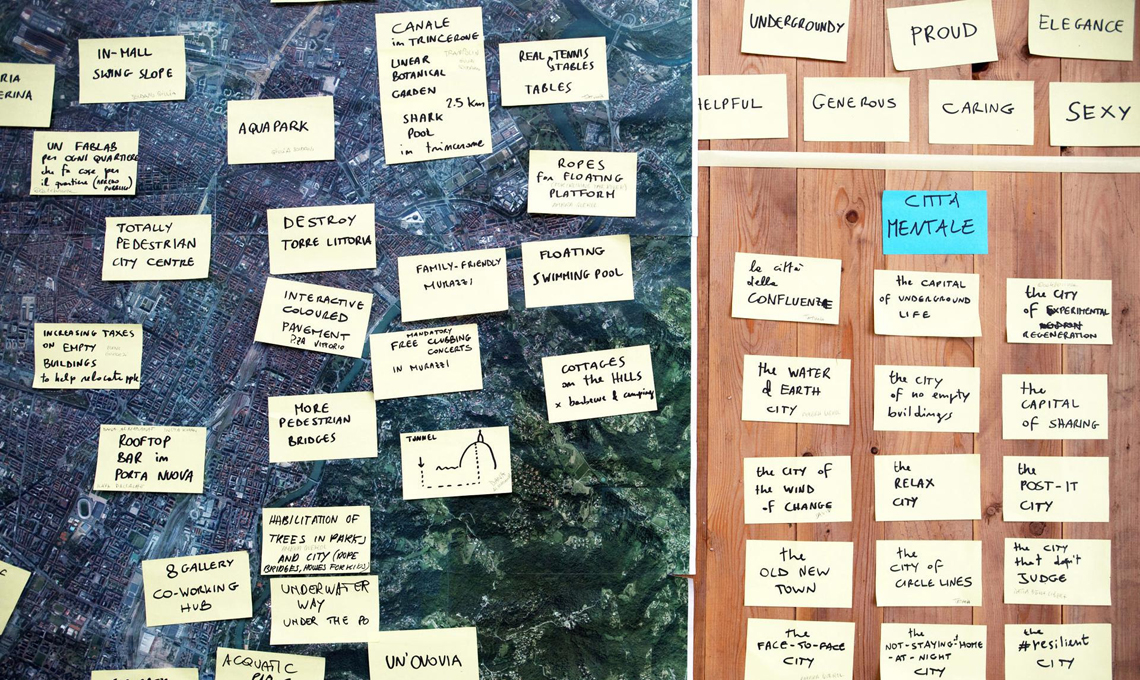 RIA
ERINA
IN-MALL
SWING SLOPE
CANALE
in TRINCERONE
LINEAR
BOTANICAL
GARDEN
2.5 km
SHARK
POOL
in trincerone
REAL TENNIS
TABLES
AQUAPARK
UN FABLAB
per OGNI QUARTIERE
che fa cose per
il quartiere (ARREDO
PUBBLICO)
ROPES
for FLOATING
PLATFORM
TOTALLY
PEDESTRIAN
CITY CENTRE
DESTROY
TORRE LITTORIA
FAMILY-FRIENDLY
MURAZZI
FLOATING
SWIMMING POOL
INTERACTIVE
COLOURED
PAVEMENT
P.ZA VITTORIO
INCREASING TAXES
ON EMPTY
BUILDINGS
to help relocate ppl
MANDATORY
FREE CLUBBING
CONCERTS
IN MURAZZI
COTTAGES
on the HILLS
x barbecue & camping
MORE
PEDESTRIAN
BRIDGES
ROOFTOP
BAR in
PORTA NUOVA
TUNNEL
HABILITATION OF
TREES IN PARKS
AND CITY (ROPE
BRIDGES, HOMES FOR KIDS)
8 GALLERY
CO-WORKING
HUB
UNDERWATER
WAY
UNDER THE PO
ACQUATIC
UN'OVOVIA
UNDERGROUNDY
PROUD
ELEGANCE
HELPFUL
GENEROUS
CARING
SEXY
CITTÀ
MENTALE
la città
della
CONFLUENZE
the CAPITAL
OF UNDERGROUND
LIFE
the CITY
OF EXPERIMENTAL
REGENERATION
the WATER
& EARTH
CITY
the CITY
of no empty
buildings
the
CAPITAL
OF SHARING
the CITY OF
the WIND
of CHANGE
the
RELAX
CITY
the
POST-IT
CITY
the
OLD NEW
TOWN
the
CITY OF
CIRCLE LINES
the CITY
that don't
JUDGE
the
FACE-TO-FACE
CITY
the
NOT-STAYING-HOME
-AT-NIGHT
CITY
the
#resilient
CITY